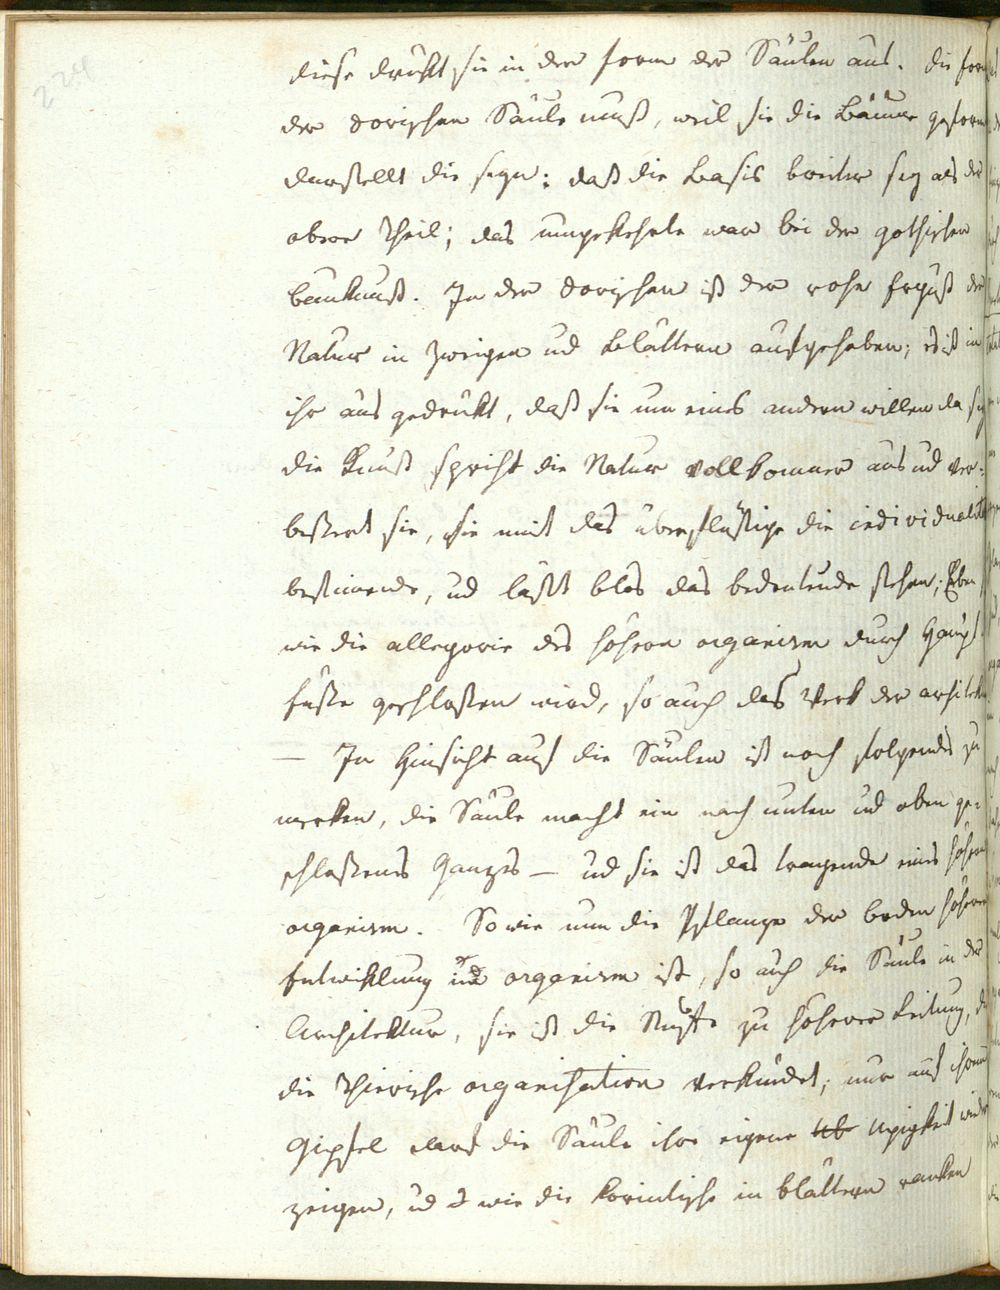 224
diese drükt sie in der form der Säulen aus. die form
der dorischen Säule muß, weil sie die Bäume geform
darstellt die seyn: daß die Basis breiter sey als der
obere Theil; das umgekehrte war bei der gothischen
baukunst. In der dorischen ist der rohe Erguß der
Natur in Zweigen ud Blättern aufgehoben; es ist in
ihr aus gedrükt, daß sie um eines andern willen da sey
die Kunst spricht die Natur vollkomner aus ud ver-
bessert sie, sie nimt das überflüssige die individualität
bestimende, ud läßt blos das bedeutende stehen; Eben
wie die allegorie des höhern organism durch Haupt
füsse geschlossen wird, so auch das Werk der architektur
— In Hinsicht auf die Säulen ist noch folgendes zu
merken, die Säule macht ein nach unten ud oben ge-
schlossenes Ganzes – ud sie ist das tragende eines höhern
organism. So wie nun die Pflanze der boden höherer
Entwiklung organism ist, so auch die Säule in der
Architektur, sie ist die Stuffe zu höherer Leitung, die
die thierische organisation verkündet; nur auf ihrem
Gipfel darf die Säule ihre eigene Üpigkeit wieder
zeigen, ud wie die korintische in blättern ranken